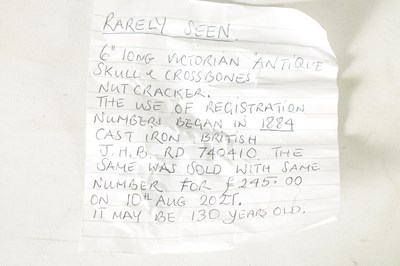 RARELY SEEN.
6" LONG VICTORIAN ANTIQUE
SKULL & CROSSBONES
NUTCRACKER.
THE USE OF REGISTRATION
NUMBERS BEGAN IN 1884
CAST IRON BRITISH
J.H.B. RD 740410 THE
SAME WAS SOLD WITH SAME
NUMBER FOR £245.00
ON 10TH AUG 2021.
IT MAY BE 130 YEARS OLD.